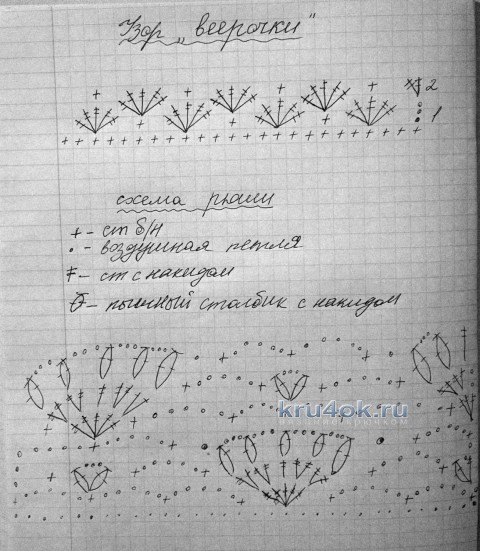 Узор „веерочки"
2
1
схема рюши
+ - ст б/н
• - воздушная петля
Ŧ - ст с накидом
- пышный столбик с накидом
kru4ok.ru